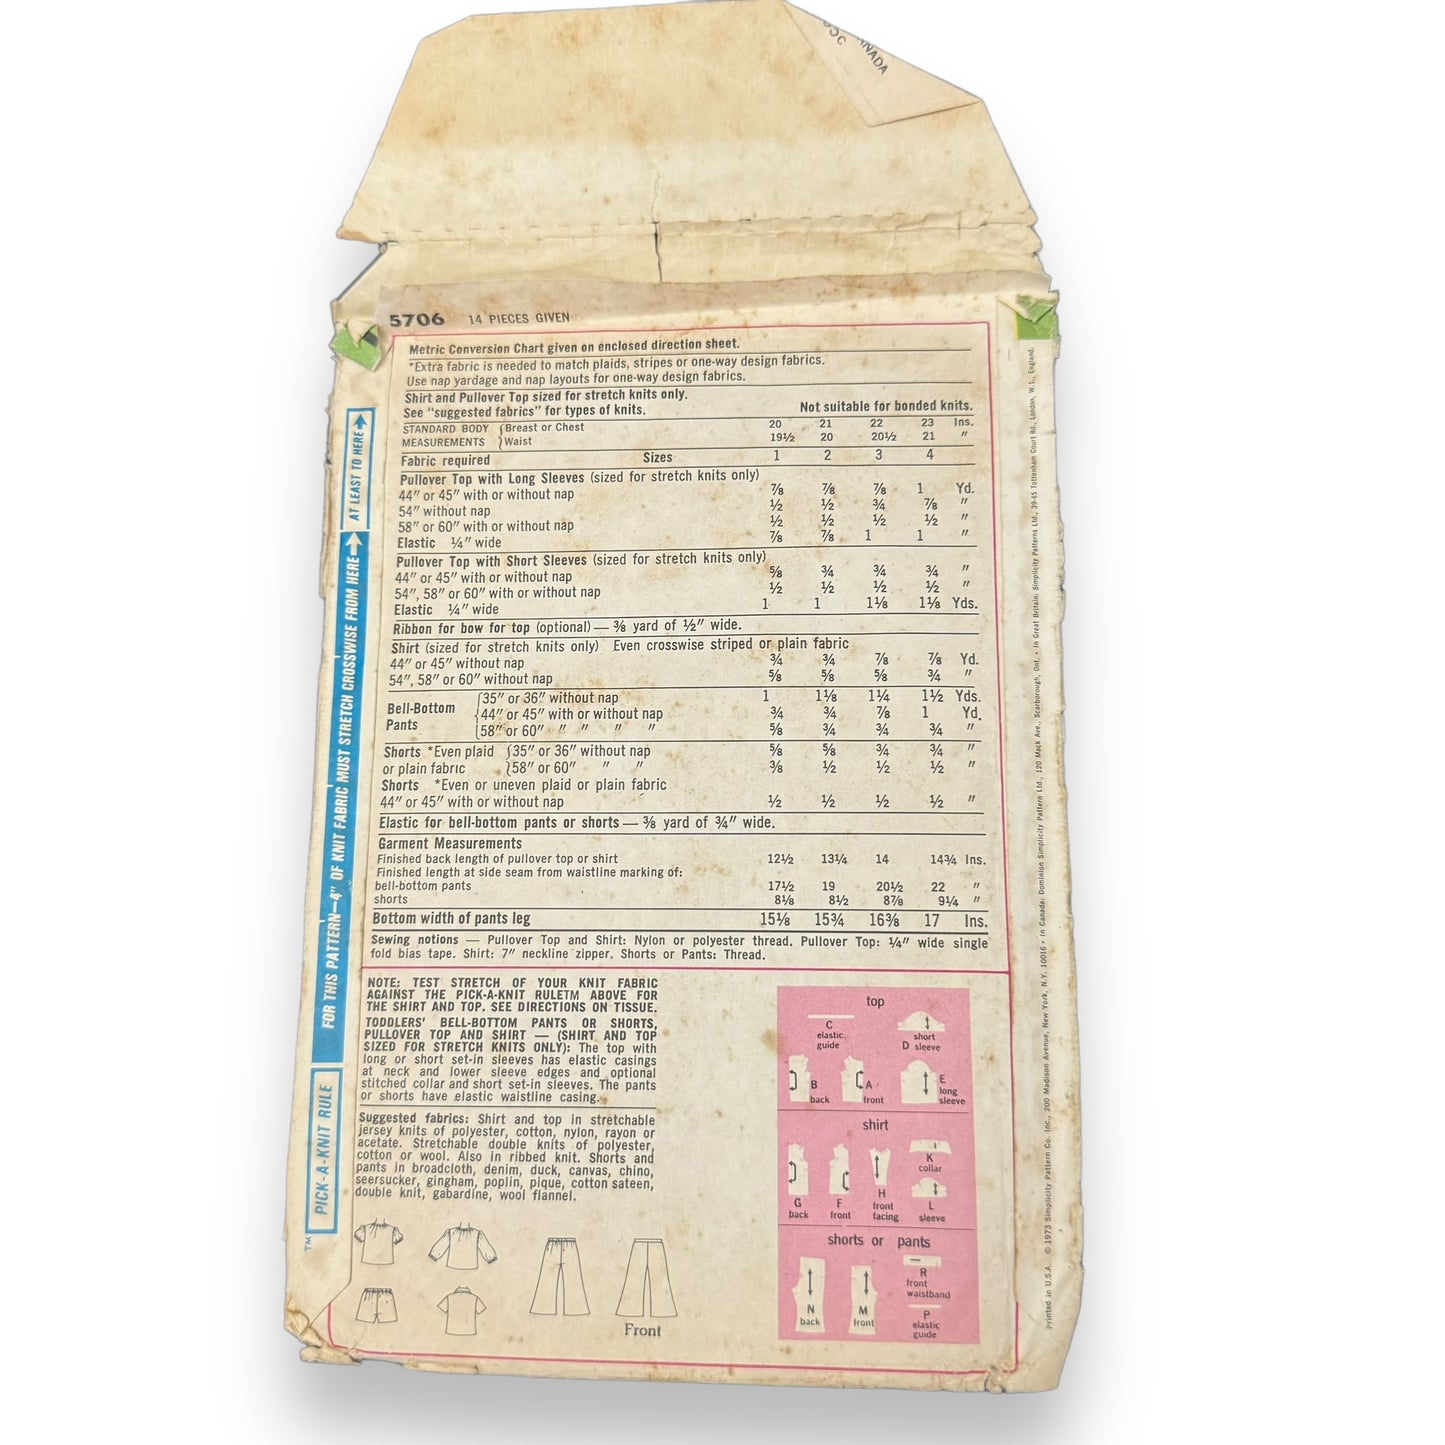 ANADA
5706 14 PIECES GIVEN
Metric Conversion Chart given on enclosed direction sheet.
*Extra fabric is needed to match plaids, stripes or one-way design fabrics.
Use nap yardage and nap layouts for one-way design fabrics.
Shirt and Pullover Top sized for stretch knits only.
See "suggested fabrics" for types of knits. Not suitable for bonded knits.
STANDARD BODY { Breast or Chest 20 21 22 23 Ins.
MEASUREMENTS { Waist 19½ 20 20½ 21 "
Fabric required Sizes 1 2 3 4
Pullover Top with Long Sleeves (sized for stretch knits only)
44" or 45" with or without nap ⅞ ⅞ ⅞ 1 Yd.
54" without nap ½ ½ ¾ ⅞ "
58" or 60" with or without nap ½ ½ ½ ½ "
Elastic ¼" wide ⅞ ⅞ 1 1 "
Pullover Top with Short Sleeves (sized for stretch knits only)
44" or 45" with or without nap ⅝ ¾ ¾ ¾ "
54", 58" or 60" with or without nap ½ ½ ½ ½ "
Elastic ¼" wide 1 1 1⅛ 1⅛ Yds.
Ribbon for bow for top (optional) — ⅜ yard of ½" wide.
Shirt (sized for stretch knits only) Even crosswise striped or plain fabric
44" or 45" without nap ¾ ¾ ⅞ ⅞ Yd.
54", 58" or 60" without nap ⅝ ⅝ ⅝ ¾ "
Bell-Bottom Pants { 35" or 36" without nap 1 1⅛ 1¼ 1½ Yds.
44" or 45" with or without nap ¾ ¾ ⅞ 1 Yd.
58" or 60" " " " " ⅝ ¾ ¾ ¾ "
Shorts *Even plaid { 35" or 36" without nap ⅝ ⅝ ¾ ¾ "
or plain fabric { 58" or 60" " " ⅜ ½ ½ ½ "
Shorts *Even or uneven plaid or plain fabric
44" or 45" with or without nap ½ ½ ½ ½ "
Elastic for bell-bottom pants or shorts — ⅜ yard of ¾" wide.
Garment Measurements
Finished back length of pullover top or shirt 12½ 13¼ 14 14¾ Ins.
Finished length at side seam from waistline marking of:
bell-bottom pants 17½ 19 20½ 22 "
shorts 8⅛ 8½ 8⅞ 9¼ "
Bottom width of pants leg 15⅛ 15¾ 16⅜ 17 Ins.
Sewing notions — Pullover Top and Shirt: Nylon or polyester thread. Pullover Top: ¼" wide single
fold bias tape. Shirt: 7" neckline zipper. Shorts or Pants: Thread.
NOTE: TEST STRETCH OF YOUR KNIT FABRIC
AGAINST THE PICK-A-KNIT RULETM ABOVE FOR
THE SHIRT AND TOP. SEE DIRECTIONS ON TISSUE.
TODDLERS' BELL-BOTTOM PANTS OR SHORTS,
PULLOVER TOP AND SHIRT — (SHIRT AND TOP
SIZED FOR STRETCH KNITS ONLY): The top with
long or short set-in sleeves has elastic casings
at neck and lower sleeve edges and optional
stitched collar and short set-in sleeves. The pants
or shorts have elastic waistline casing.
Suggested fabrics: Shirt and top in stretchable
jersey knits of polyester, cotton, nylon, rayon or
acetate. Stretchable double knits of polyester,
cotton or wool. Also in ribbed knit. Shorts and
pants in broadcloth, denim, duck, canvas, chino,
seersucker, gingham, poplin, pique, cotton sateen,
double knit, gabardine, wool flannel.
Front
top
C elastic guide
short D sleeve
B back
A front
E long sleeve
shirt
G back
F front
H front facing
K collar
L sleeve
shorts or pants
N back
M front
R front waistband
P elastic guide
PICK-A-KNIT RULE TM
FOR THIS PATTERN—4" OF KNIT FABRIC MUST STRETCH CROSSWISE FROM HERE
AT LEAST TO HERE
Printed in U.S.A. © 1973 Simplicity Pattern Co. Inc., 200 Madison Avenue, New York, N.Y. 10016 • In Canada: Dominion Simplicity Pattern Ltd., 120 Mack Ave., Scarborough, Ont. • In Great Britain: Simplicity Patterns Ltd., 39-45 Tottenham Court Rd., London, W.1., England.